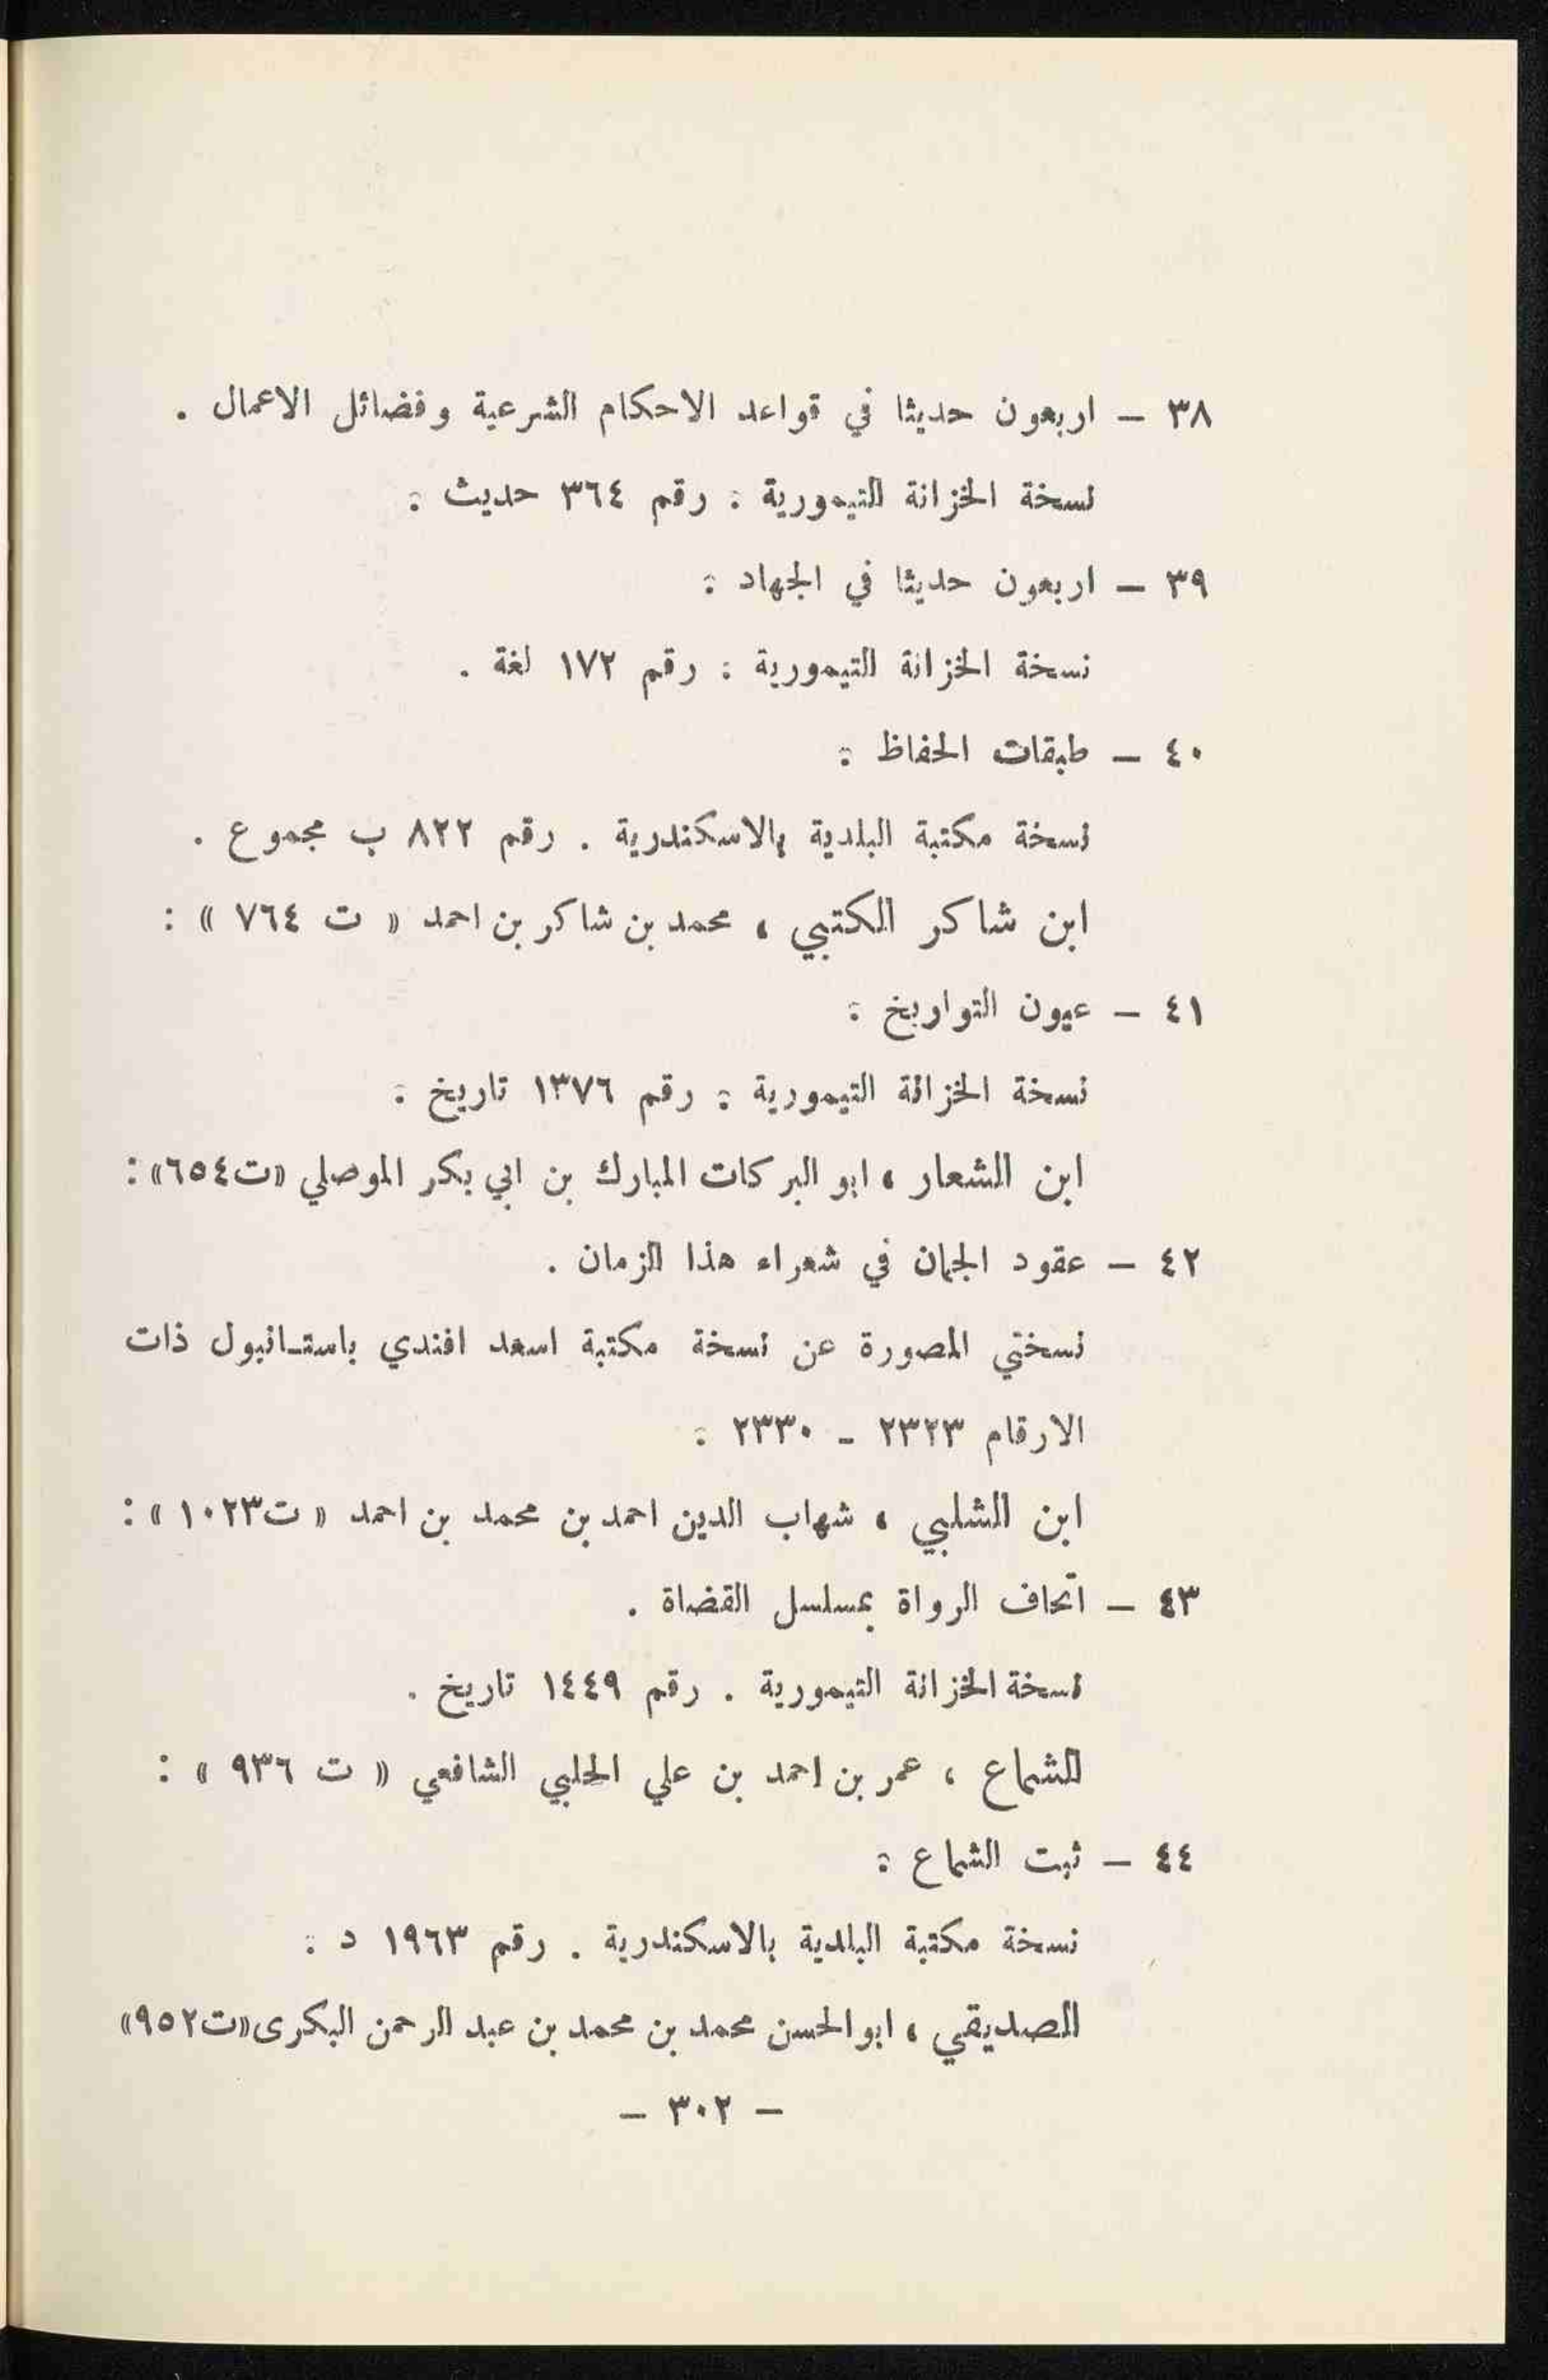 ٣٨ — اربعون حديثا في قواعد الاحكام الشرعية وفضائل الاعمال .
نسخة الخزانة التيمورية : رقم ٣٦٤ حديث :
٣٩ — اربعون حديثا في الجهاد :
نسخة الخزانة التيمورية : رقم ١٧٢ لغة .
٤٠ — طبقات الحفاظ :
نسخة مكتبة البلدية بالاسكندرية . رقم ٨٢٢ ب مجموع .
ابن شاكر الكتبي ، محمد بن شاكر بن احمد « ت ٧٦٤ » :
٤١ — عيون التواريخ :
نسخة الخزانة التيمورية : رقم ١٣٧٦ تاريخ :
ابن الشعار ، ابو البركات المبارك بن ابي بكر الموصلي «ت٦٥٤» :
٤٢ — عقود الجمان في شعراء هذا الزمان .
نسختي المصورة عن نسخة مكتبة اسعد افندي باستـانبول ذات
الارقام ٢٣٢٣ - ٢٣٣٠ :
ابن الشلبي ، شهاب الدين احمد بن محمد بن احمد « ت١٠٢٣ » :
٤٣ — اتحاف الرواة بمسلسل القضاة .
نسخة الخزانة التيمورية . رقم ١٤٤٩ تاريخ .
الشماع ، عمر بن احمد بن علي الحلبي الشافعي « ت ٩٣٦ » :
٤٤ — ثبت الشماع :
نسخة مكتبة البلدية بالاسكندرية . رقم ١٩٦٣ د :
الصديقي ، ابو الحسن محمد بن محمد بن عبد الرحمن البكرى «ت٩٥٢»
— ٣٠٢ —